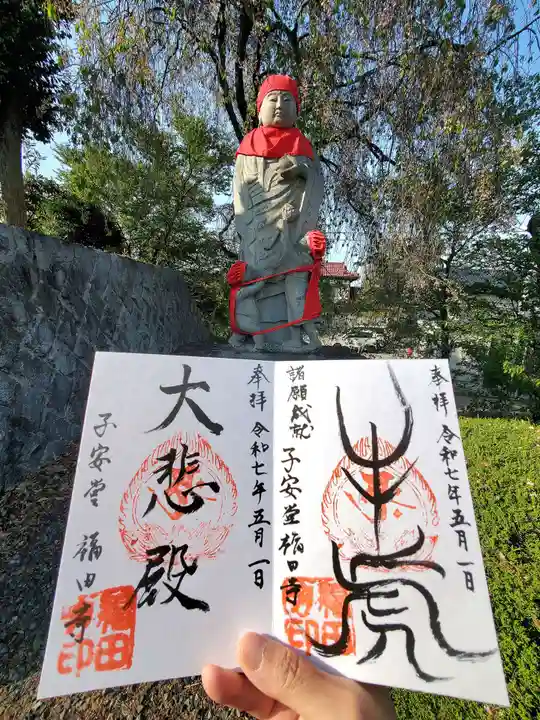 奉拝 令和七年五月一日
諸願成就 子安堂 福田寺
奉拝 令和七年五月一日
大悲殿
子安堂 福田寺
福田
寺印